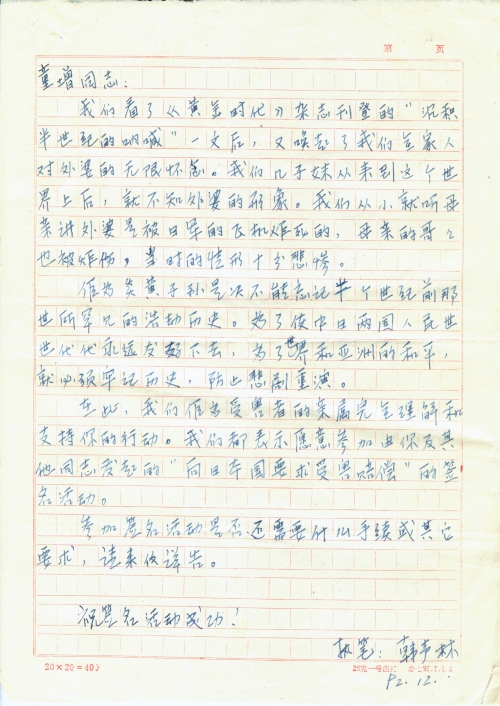 第 页
童增同志：
我们看了《黄金时代》杂志刊登的“沉积
半世纪的呐喊”一文后，又唤起了我们全家人
对外婆的无限怀念。我们几子妹从来到这个世
界上后，就不知外婆的形象。我们从小就听母
亲讲外婆是被日军的飞机炸死的，母亲的哥々
也被炸伤，当时的情形十分悲惨。
作为炎黄子孙是决不能忘记半个世纪前那
世所罕见的浩劫历史。为了使中日两国人民世
世代代永远友好下去，为了世界和亚洲的和平，
就必须牢记历史，防止悲剧重演。
在此，我们作为受害者的亲属完全理解和
支持你的行动。我们都表示愿意参加由你及其
他同志发起的“向日本国要求受害赔偿”的签
名活动。
参加签名活动是否还需要什么手续或其它
要求，请来信详告。
祝签名活动成功！
执笔：韩声林
20×20=400
92.12.